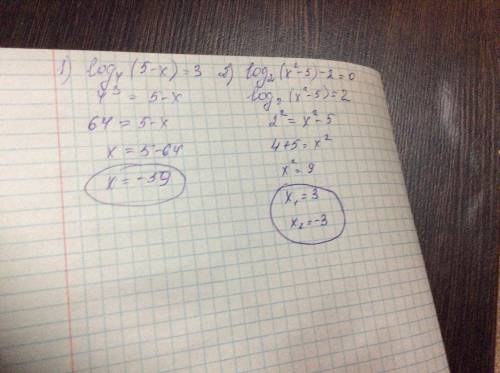 1) log₄(5-x)=3
4³ = 5-x
64 = 5-x
x = 5-64
x = -59
2) log₂(x²-5)-2=0
log₂(x²-5)=2
2² = x²-5
4+5 = x²
x² = 9
x₁ = 3
x₂ = -3